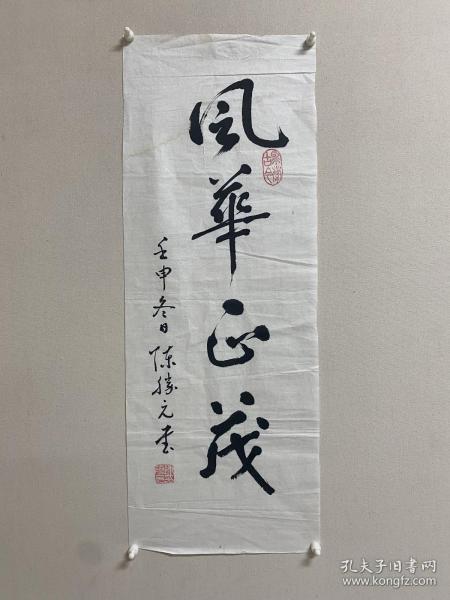 風華正茂
壬申冬日 陈勝元書
孔夫子旧书网
www.kongfz.com